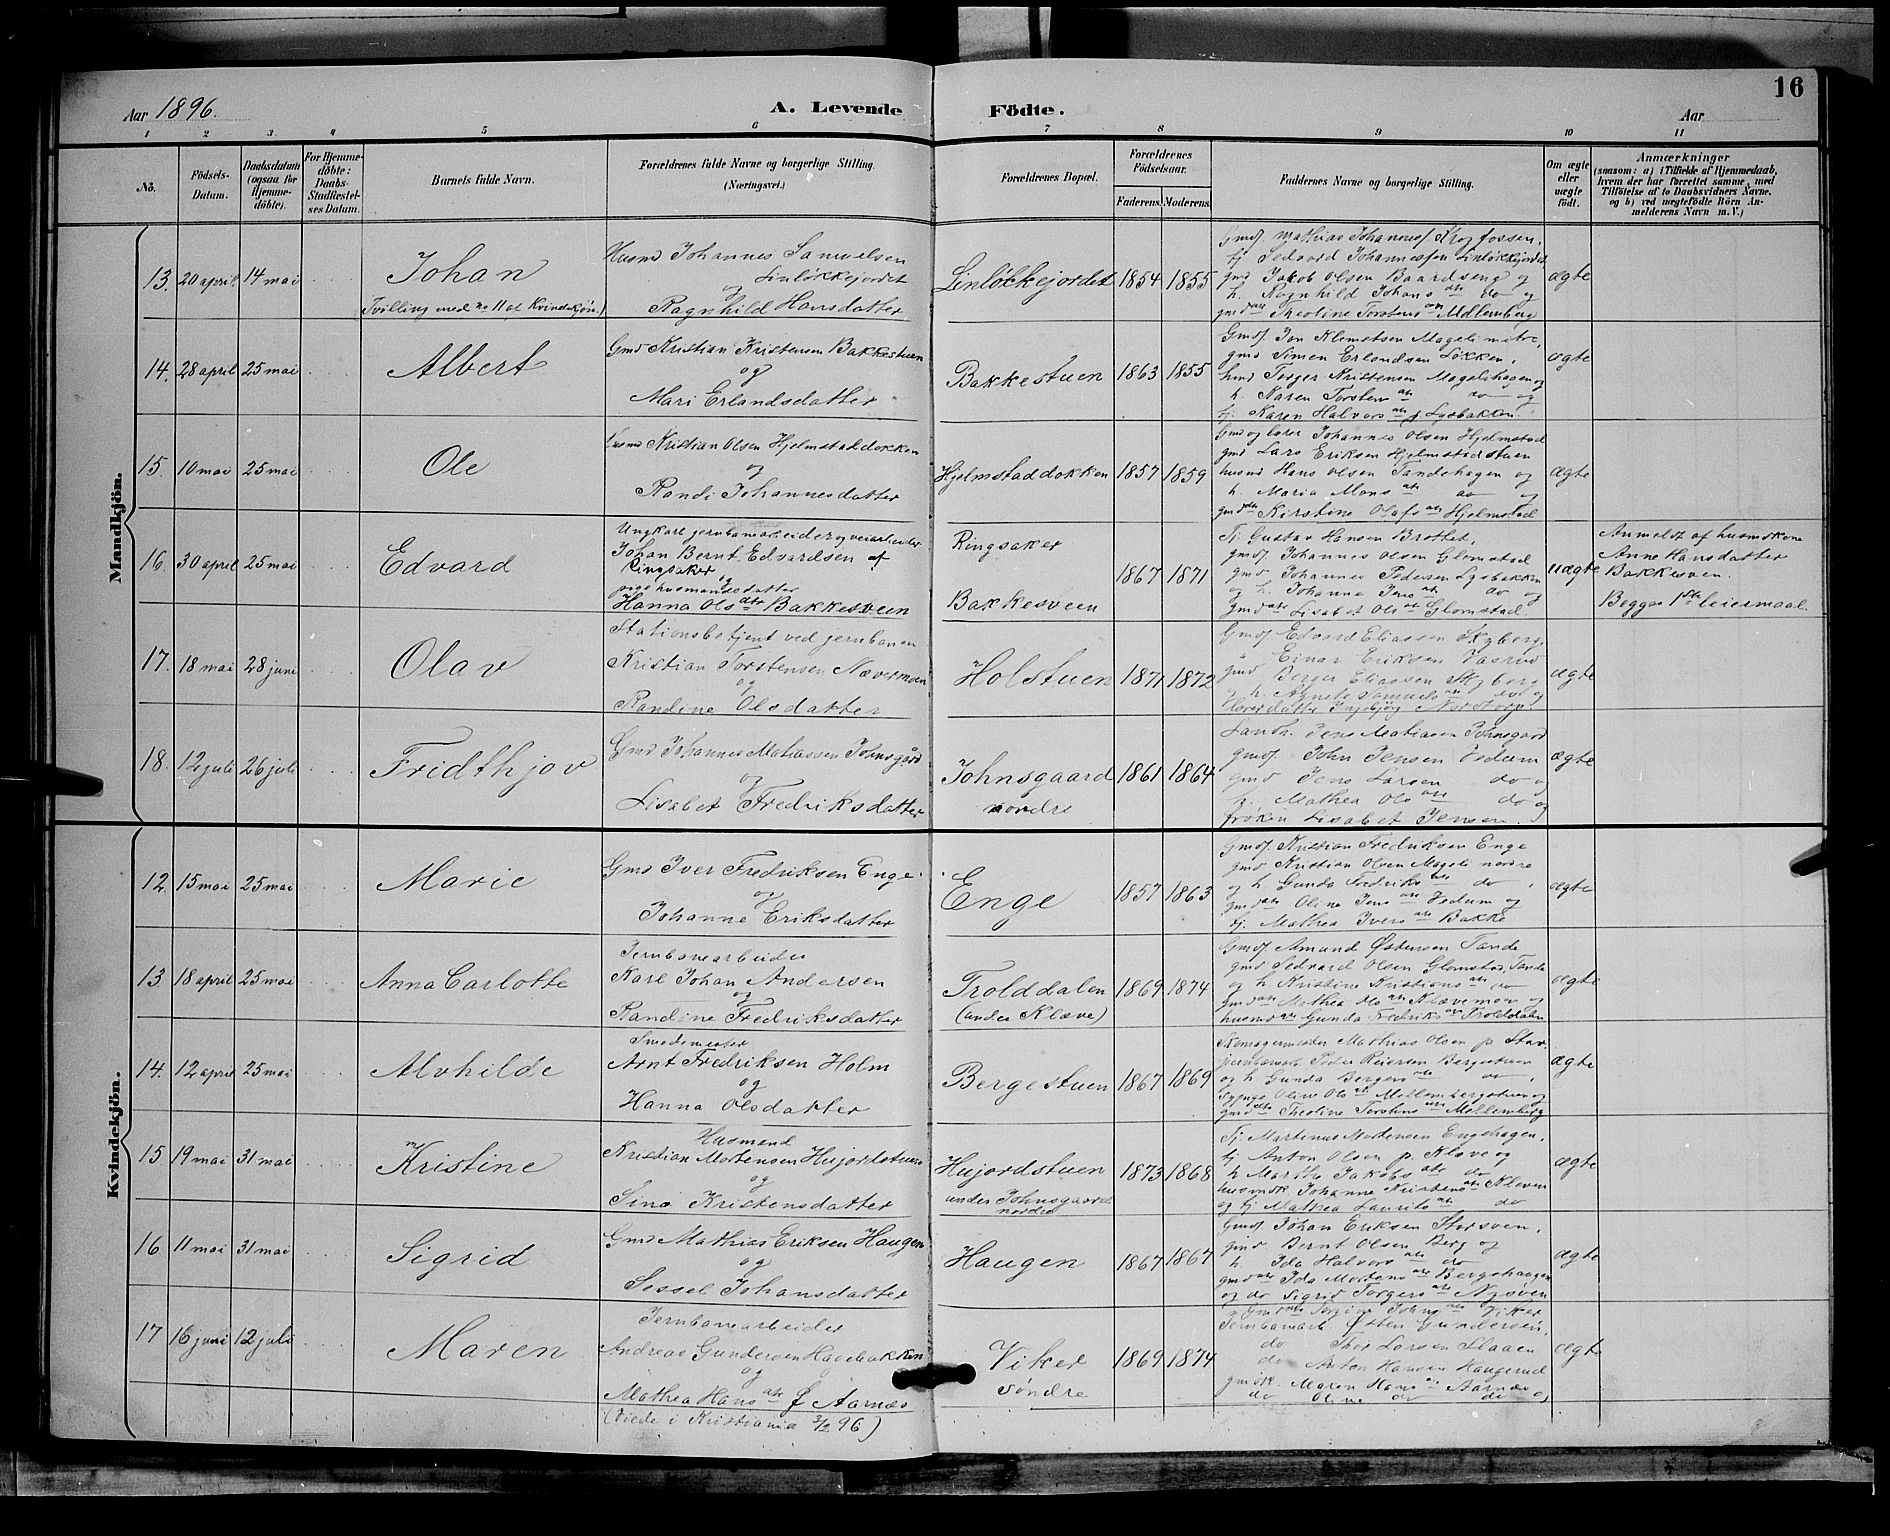 16
Aar 1896.
A. Levende Födte.
Aar
1 2 3. 4 5 6 7 8 9 10 11
Nö.
Födsels-Datum.
Daabsdatum (ogsaa for Hjemme-döbte).
For Hjemme-döbte: Daabs-Stadfæstel-ses Datum.
Barnets fulde Navn.
Forældrenes fulde Navne og borgerlige Stilling. (Næringsvei.)
Forældrenes Bopæl.
Forældrenes Födselsaar.
Faderens. Moderens.
Faddernes Navne og borgerlige Stilling.
Om ægte eller uægte født.
Anmærkninger
(saasom: a) i Tilfælde af Hjemmedaab,
hvem der har forrettet samme, med
Tilföielse af to Daabsvidners Navne,
og b) ved uægtefödte Börn An-
melderens Navn m. V.)
Mandkjön.
13. 20 april 14 mai Johan
(Tvilling med no 11 af Kvindekjøn.)
Husmd Johannes Samuelsen
Linløkkejordet
og
Ragnhild Hansdatter
Linløkkejordet 1854 1855
Gmdf. Mathias Johannesf. Krogfossen,
tj. Sedvard Johannessen Linløkkejordet
gmd Jakob Olsen Baardseng og
h. Ragnhild Johans dtr do og
gmd dtr Theoline Torstens dtr Møllerberg
ægte
14. 28 april 25 mai Albert
Gmd Kristian Kristensen Bakkestuen
og
Mari Erlandsdatter
Bakkestuen 1863 1855
Gmdf. Jon Klemetsen Mageli nètre,
gmd Simen Erlandsen Løkken,
hmd Torger Kristensen Magelihagen og
h. Karen Torstens dtr do og
tj. Karen Halvors dtr p Lysbakken.
ægte
15. 10 mai 25 mai Ole
Husmd Kristian Olsen Hjelmstaddokken
og
Randi Johannesdatter
Hjelmstaddokken 1857 1859
Gmd og lærer Johannes Olsen Hjelmstad
gmd Lars Eriksen Hjelmstadstuen
husmd Hans Olsen Tandehagen og
h. Maria Mons dtr do og
gmd dtr Kirstine Olafs dtr Hjelmstad
ægte
16. 30 april 25 mai Edvard
Ungkarl jernbanearbeider og veiarbeider
Johan Bernt Edvardsen af
Ringsaker
og
pige husmandsdatter
Hanna Ols dtr Bakkesveen
Ringsaker
Bakkesveen
1867 1871
Tj. Gustav Hansen Brottet,
gmdf. Johannes Olsen Glomstad
gmd. Johannes Pedersen Lysbakken
og h. Johanne Jens dtr do og
gmd dtr Lisabet Ols dtr Glomstad
uægte
Anmeldt af husmdkone
Anne Hansdatter
Bakkesven.
Begges 1ste leiermaal.
17. 18 mai 28 juni Olav
Stationsbetjent ved jernbanen
Kristian Torstensen Nævermoen
og
Randine Olsdatter
Holstuen 1871 1872
Gmdf. Edvard Eliassen Skyberg,
Einar Eriksen
gmd Berger Eliassen Skyberg
h. Agnete Samuels dtr do og
datter Ingebjørg
ægte
18. 12 juli 26 juli Fridthjov
Gmd Johannes Mathiassen Johnsgård
og
Lisabet Fredriksdatter
Johnsgaard
nordre
1861 1864
Landh. Jens Mathiasen Johnsgard
gmdf. John Jensen Vedum
gmd Jens Larsen do og
h. Mathea Ols dtr do og
frøken Lisabet Jensen.
ægte
Kvindekjön.
12. 15 mai 25 mai Marie
Gmd Iver Fredriksen Enge.
og
Johanne Eriksdatter
Enge 1857 1863
Gmdf. Kristian Fredriksen Enge
gmd Kristian Olsen Mageli nordre
og h. Gunda Fredriks dtr do,
gmd dtr Oline Jens dtr Vedum og
tj. Mathea Ivers dtr Bakke
ægte
13. 18 april 25 mai Anna Carlotte
Jernbanearbeider
Karl Johan Andersen
og
Randine Fredriksdatter
Trolddalen
(under Klæve)
1869 1874
Gmdf. Amund Østensen Tande
gmd Sedvard Olsen Glomstad, Tande
og h. Kristine Kristians dtr do
gmd dtr Mathea Ols dtr Klævemoen og
husmd dtr Gunda Fredriks dtr Trolddalen
ægte
14. 12 april 25 mai Alvhilde
Smedmester
Arnt Fredriksen Holm
og
Hanna Olsdatter
Bergestuen 1867 1869
Skomagermester Mathias Olsen p. Stav
jernbanearb. Peder Reiersen Bergestuen
og h. Gunda Bergers dtr do,
sypige Oline Ols dtr Møllembergstuen og
gmd dtr Theoline Torstens dtr Møllemberg
ægte
15 19 mai 31 mai Kristine
Husmand
Kristian Mortensen Hujordstuen
og
Sina Kristensdatter
Hujordstuen
under Johnsgaard
nordre
1873 1868
Tj. Martinus Mortensen Engehagen,
tj. Anton Olsen p. Klæve og
h. Marthe Jakobs dtr do
husmdk. Johanna Kristens dtr Kleven
og tj Mathea Laurits dtr do
ægte
16. 11 mai 31 mai Sigrid
Gmd Mathias Eriksen Haugen
og
Sessel Johansdatter
Haugen 1867 1867
Gmdf. Johan Eriksen Storsveen,
gmd Bernt Olsen Berg og
h. Ida Halvors dtr do
gmd dtr Ida Mortens dtr Bergshaugen
og do Sigrid Torgers dtr Nysveen
ægte
17 16 juni 12 juli Maren
Jernbanearbeider
Andreas Gundersen Hagebakken
og
Mathea Hans dtr f Aarnæs
(Viede i Kristiania 3/2 96)
Viker
søndre
1869 1874
Gmd dtr Torgine Johns dtr Viker
Jernbanearb. Østen Gundersen,
do Thor Larsen Slaaen
do Anton Hansen Haugerud
gmdk. Maren Hans dtr Aarnæs
do Oline do do og
ægte